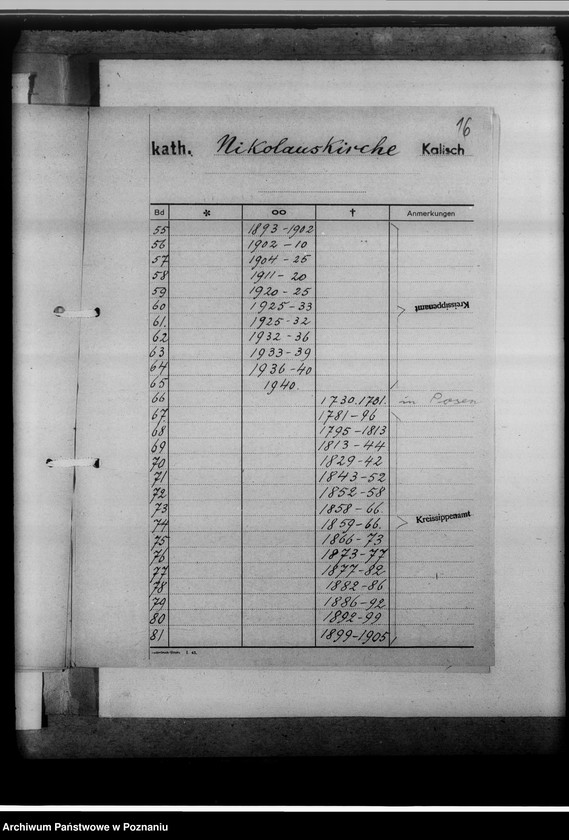 16
kath. Nikolauskirche Kalisch
Bd * oo † Anmerkungen
55 1893-1902
56 1902-10
57 1904-25
58 1911-20
59 1920-25
60 1925-33 Kreissippenamt
61. 1925-32
62 1932-36
63 1933-39
64 1936-40
65 1940.
66 1730.1781. in Posen
67. 1781-96
68 1795-1813
69 1813-44
70 1829-42
71 1843-52
72 1852-58
73 1858-66.
74 1859-66. Kreissippenamt
75 1866-73
76 1873-77
77 1877-82
78 1882-86
79 1886-92
80 1892-99
81 1899-1905
Archiwum Państwowe w Poznaniu